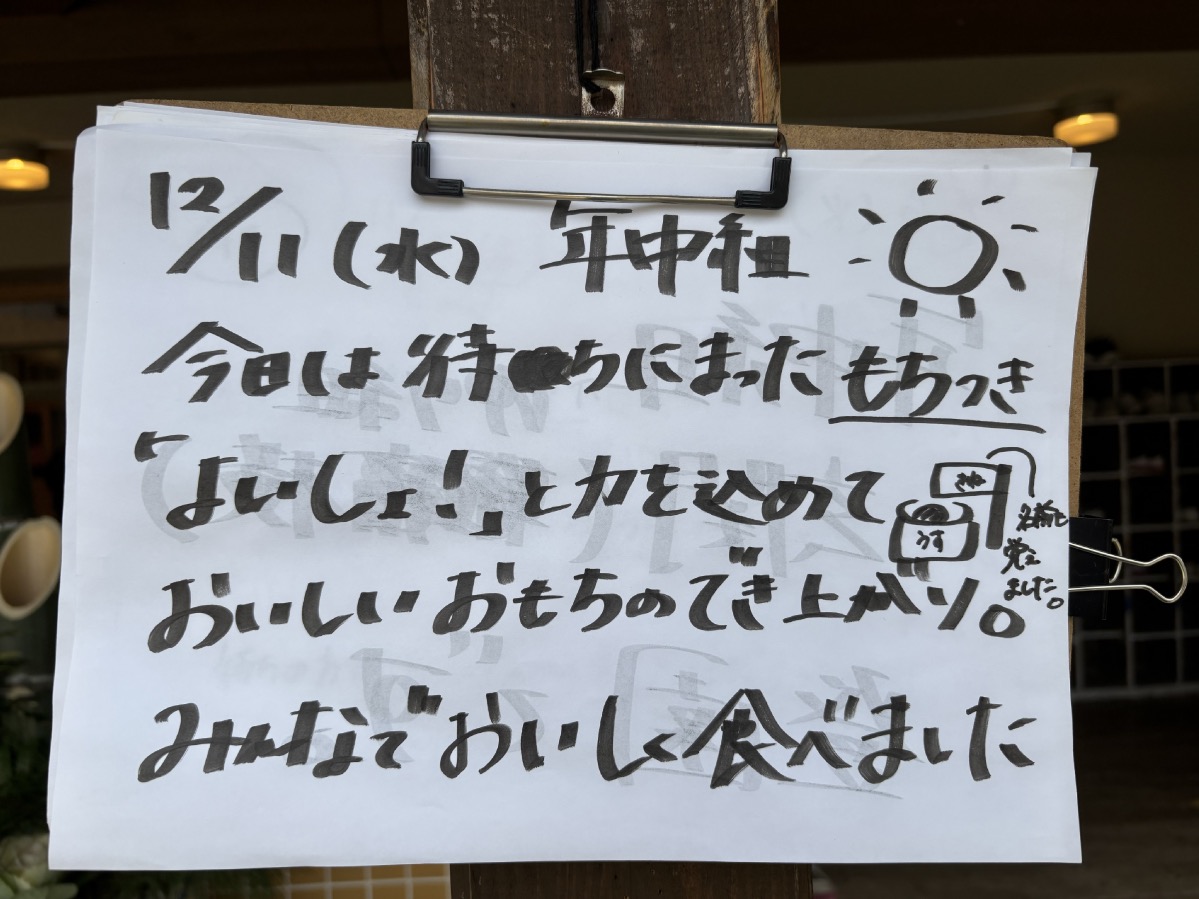 12/11(水) 年中組
今日は待ちにまったもちつき
「よいしょ!」と力を込めて
きね
うす
名前も
覚え
ました。
おいしいおもちのでき上がり。
みんなでおいしく食べました